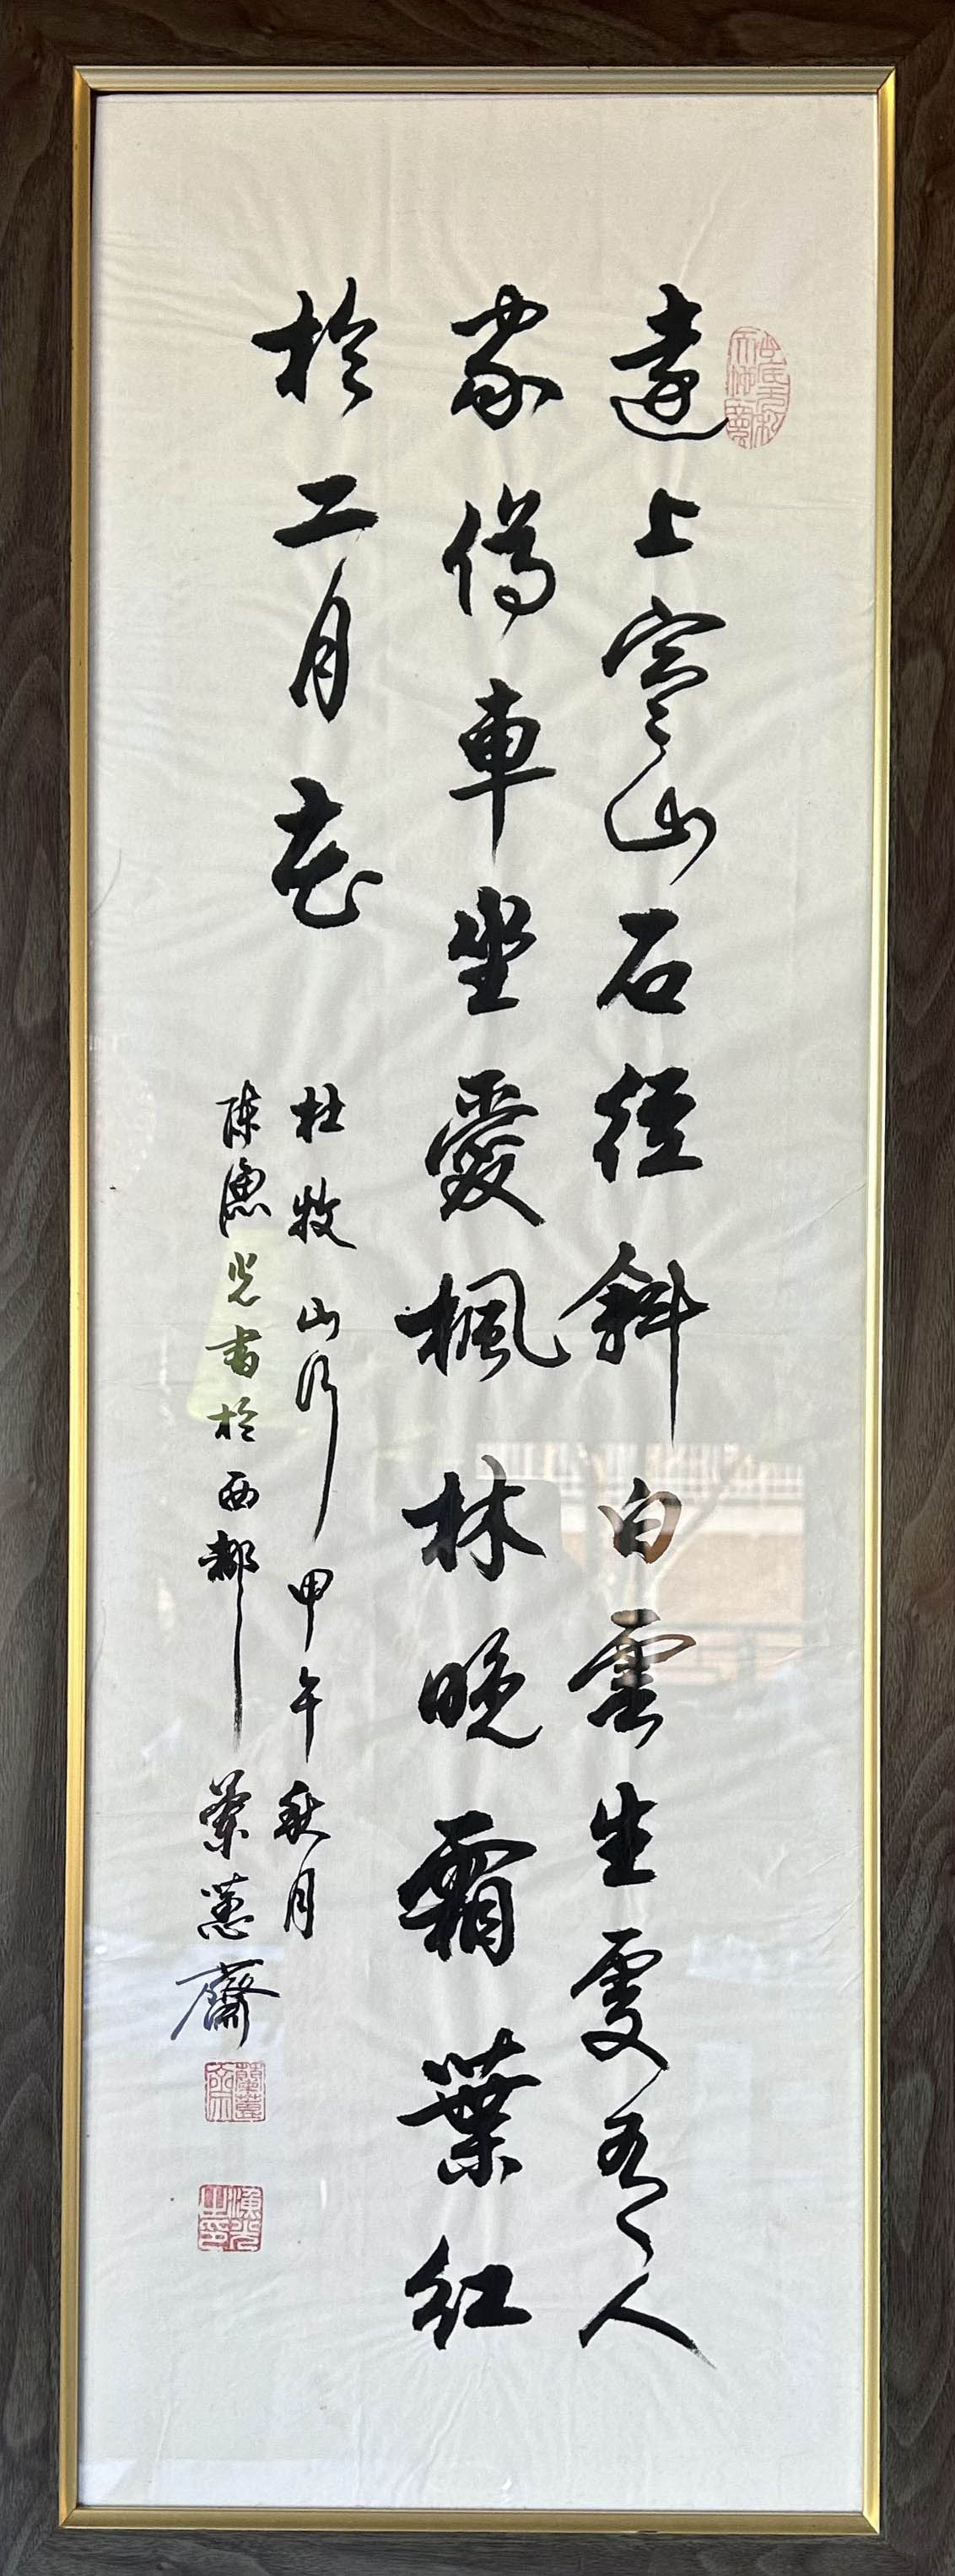 遠上寒山石徑斜白雲生處有人
家停車坐愛楓林晚霜葉紅
於二月花
杜牧山行 甲午秋月
陳漁光書於西都 蘭蕙齋
蘭蕙齋
漁光之印